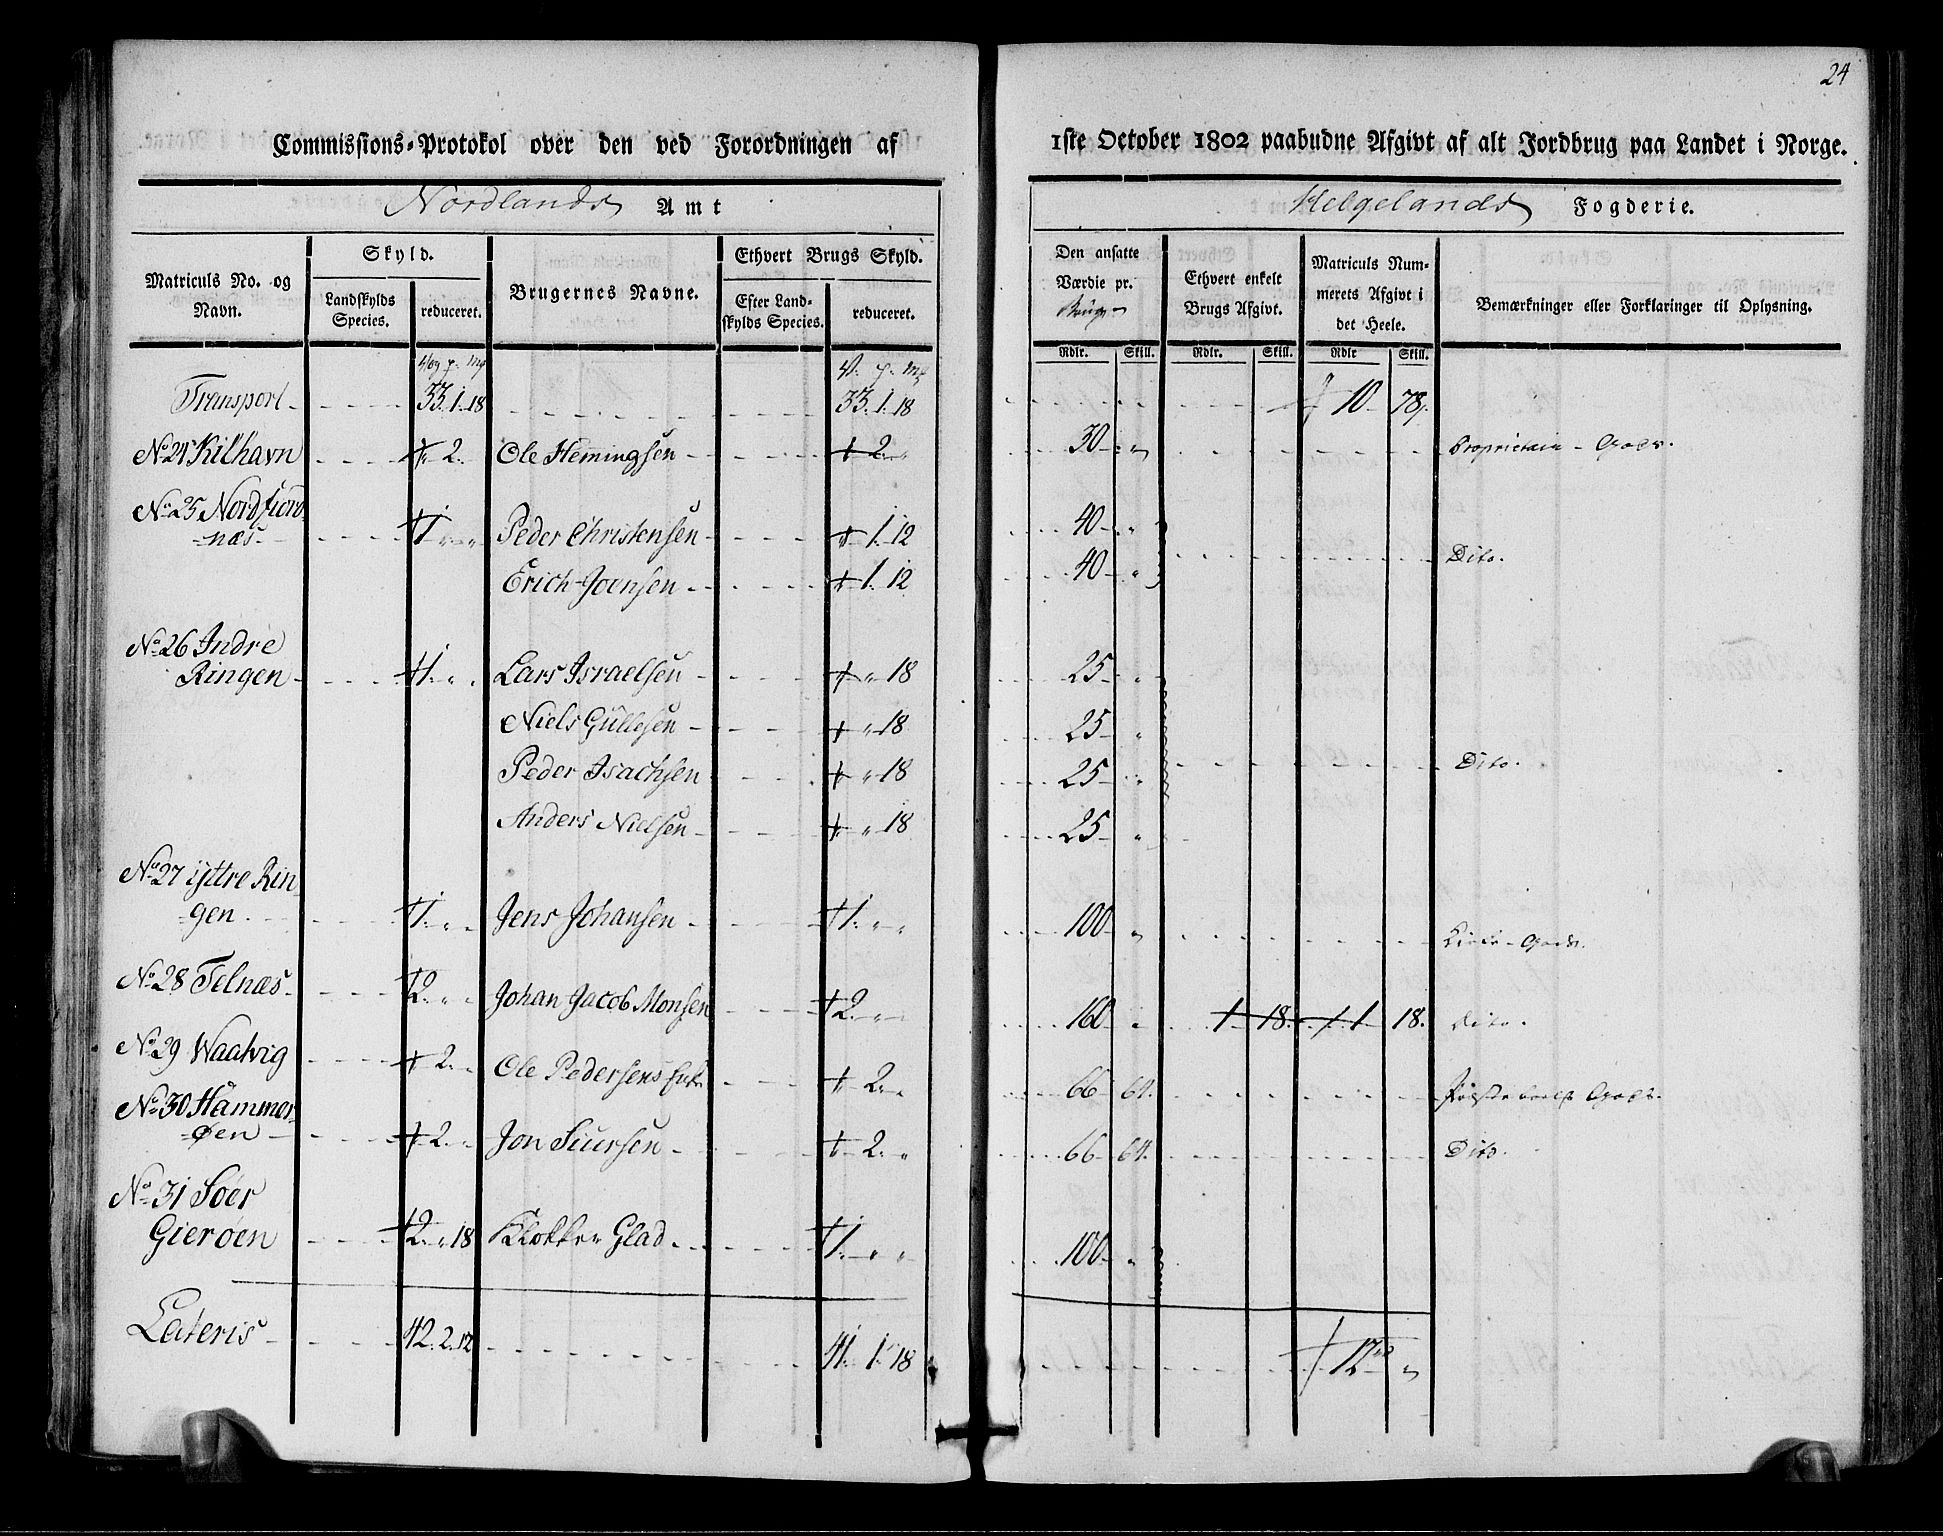 24
Commissions-Protokol over den ved Forordningen af
1ste October 1802 paabudne Afgivt af alt Jordbrug paa Landet i Norge.
Nordlands Amt
Helgelands Fogderie.
Matriculs No. og Navn.
Skyld.
Landskylds Species.
reduceret.
Brugernes Navne.
Ethvert Brugs Skyld.
Efter Landskylds Species.
reduceret.
Den ansatte Værdie pr. Brug
Ethvert enkelt Brugs Afgivt.
Matriculs Nummerets Afgivt i det Heele.
Bemærkninger eller Forklaringer til Oplysning.
Rdlr. Skill. Rdlr. Skill. Rdlr Skill.
Transport 33. 1. 18 33. 1. 18 10 78
No 24 Kilhavn 2. Ole Hemingsen 2. 30 Proprietair Gods.
No 25 Nordfiord-
næs 1 Peder Christensen 1. 12 40
Erich Joensen 1. 12 40 Dito.
No 26 Indre
Ringen 1. Lars Israelsen 18 25
Niels Gullesen 18 25
Peder Isachsen 18 25 Dito.
Anders Nielsen 18 25
No 27 ÿttre Rin-
gen 1. Jens Johansen 1. 100 Kirke Gods.
No 28 Telnæs 2. Johan Jacob Monsen 2. 160 1 18. 1 18. Dito.
No 29 Waatvig 2. Ole Pedersens Enke 2. 66 64. Præstebords Gods.
No 30 Hammer-
øen 2. Jon Siursen 2. 66 64. Dito.
No 31 Søer
Gierøen 2. 18 Klokker Glad 1. 100
Lateris 42. 2. 12 41. 1. 18 12